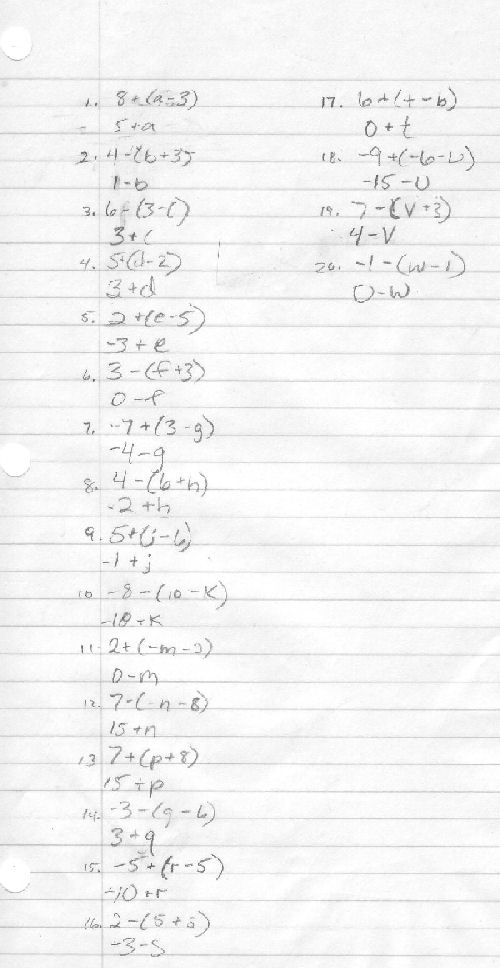 1. 8+(a-3)
5+a
2. 4-(b+3)
1-b
3. 6-(3-c)
3+c
4. 5+(d-2)
3+d
5. 2+(e-5)
-3+e
6. 3-(f+3)
0-f
7. -7+(3-g)
-4-g
8. 4-(6+h)
-2+h
9. 5+(j-6)
-1+j
10 -8-(10-K)
-18+K
11. 2+(-m-2)
0-m
12. 7-(-n-8)
15+n
13 7+(p+8)
15+p
14. -3-(q-6)
3+q
15. -5+(r-5)
-10+r
16. 2-(5+s)
-3-s
17. 6+(t-6)
0+t
18. -9+(-6-U)
-15-U
19. 7-(V+3)
4-V
20. -1-(w-1)
0-w